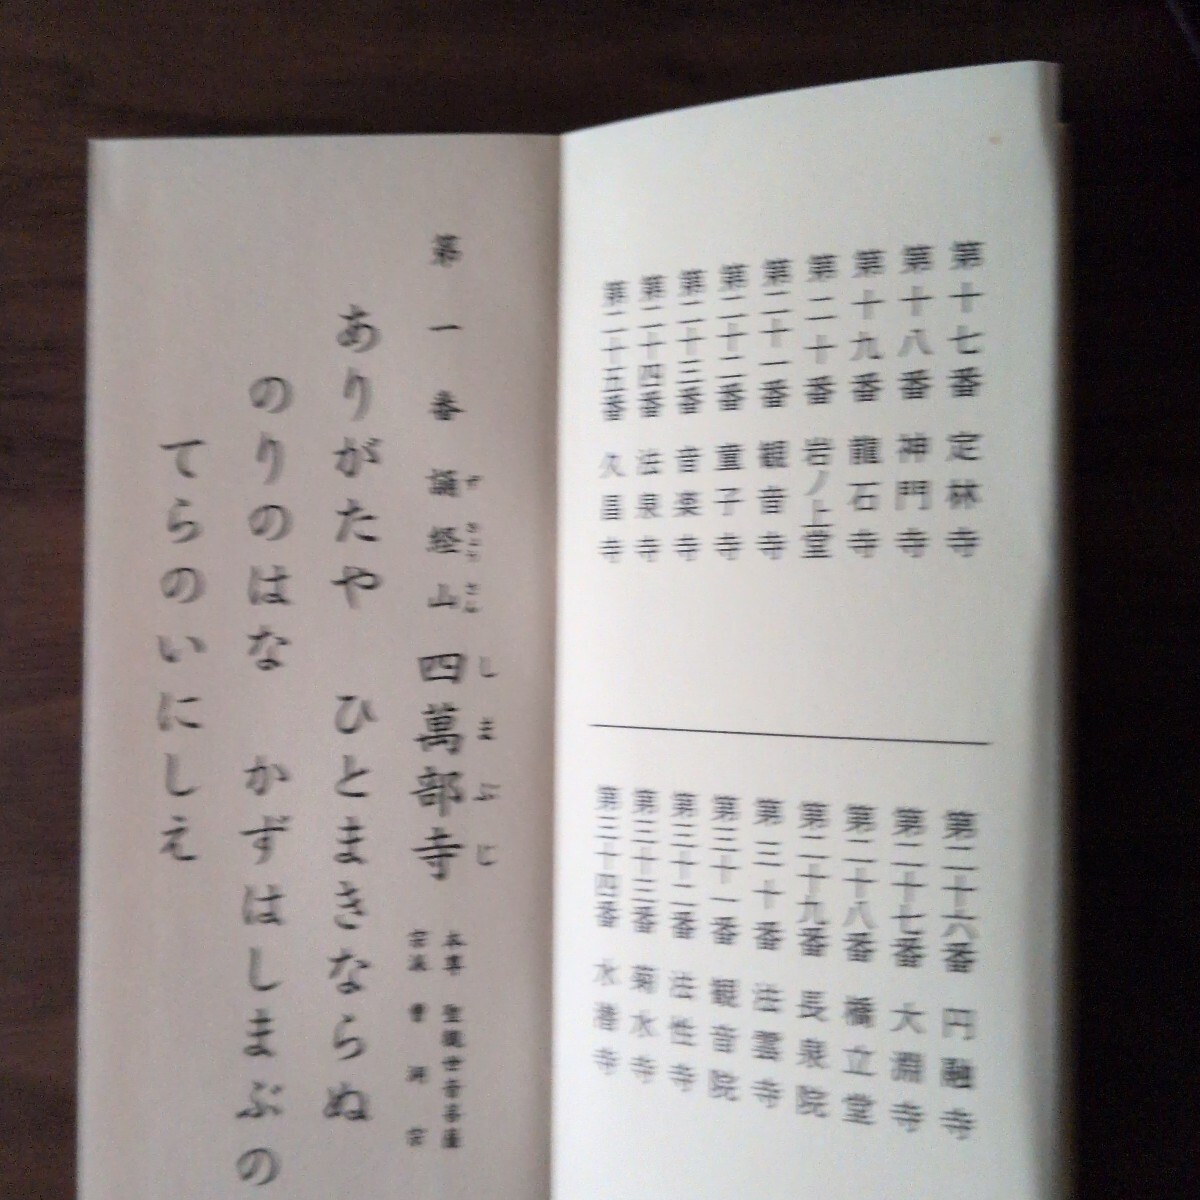 第十七番 定林寺
第十八番 神門寺
第十九番 龍石寺
第二十番 岩ノ上堂
第二十一番 観音寺
第二十二番 童子寺
第二十三番 音楽寺
第二十四番 法泉寺
第二十五番 久昌寺
第二十六番 円融寺
第二十七番 大淵寺
第二十八番 橋立堂
第二十九番 長泉院
第三十番 法雲寺
第三十一番 観音院
第三十二番 法性寺
第三十三番 菊水寺
第三十四番 水潜寺
第一番 誦経山 四萬部寺
ずきょうさん しまぶじ
本尊 聖観世音菩薩
宗派 曹洞宗
ありがたや ひとまきならぬ
のりのはな かずはしまぶの
てらのいにしえ